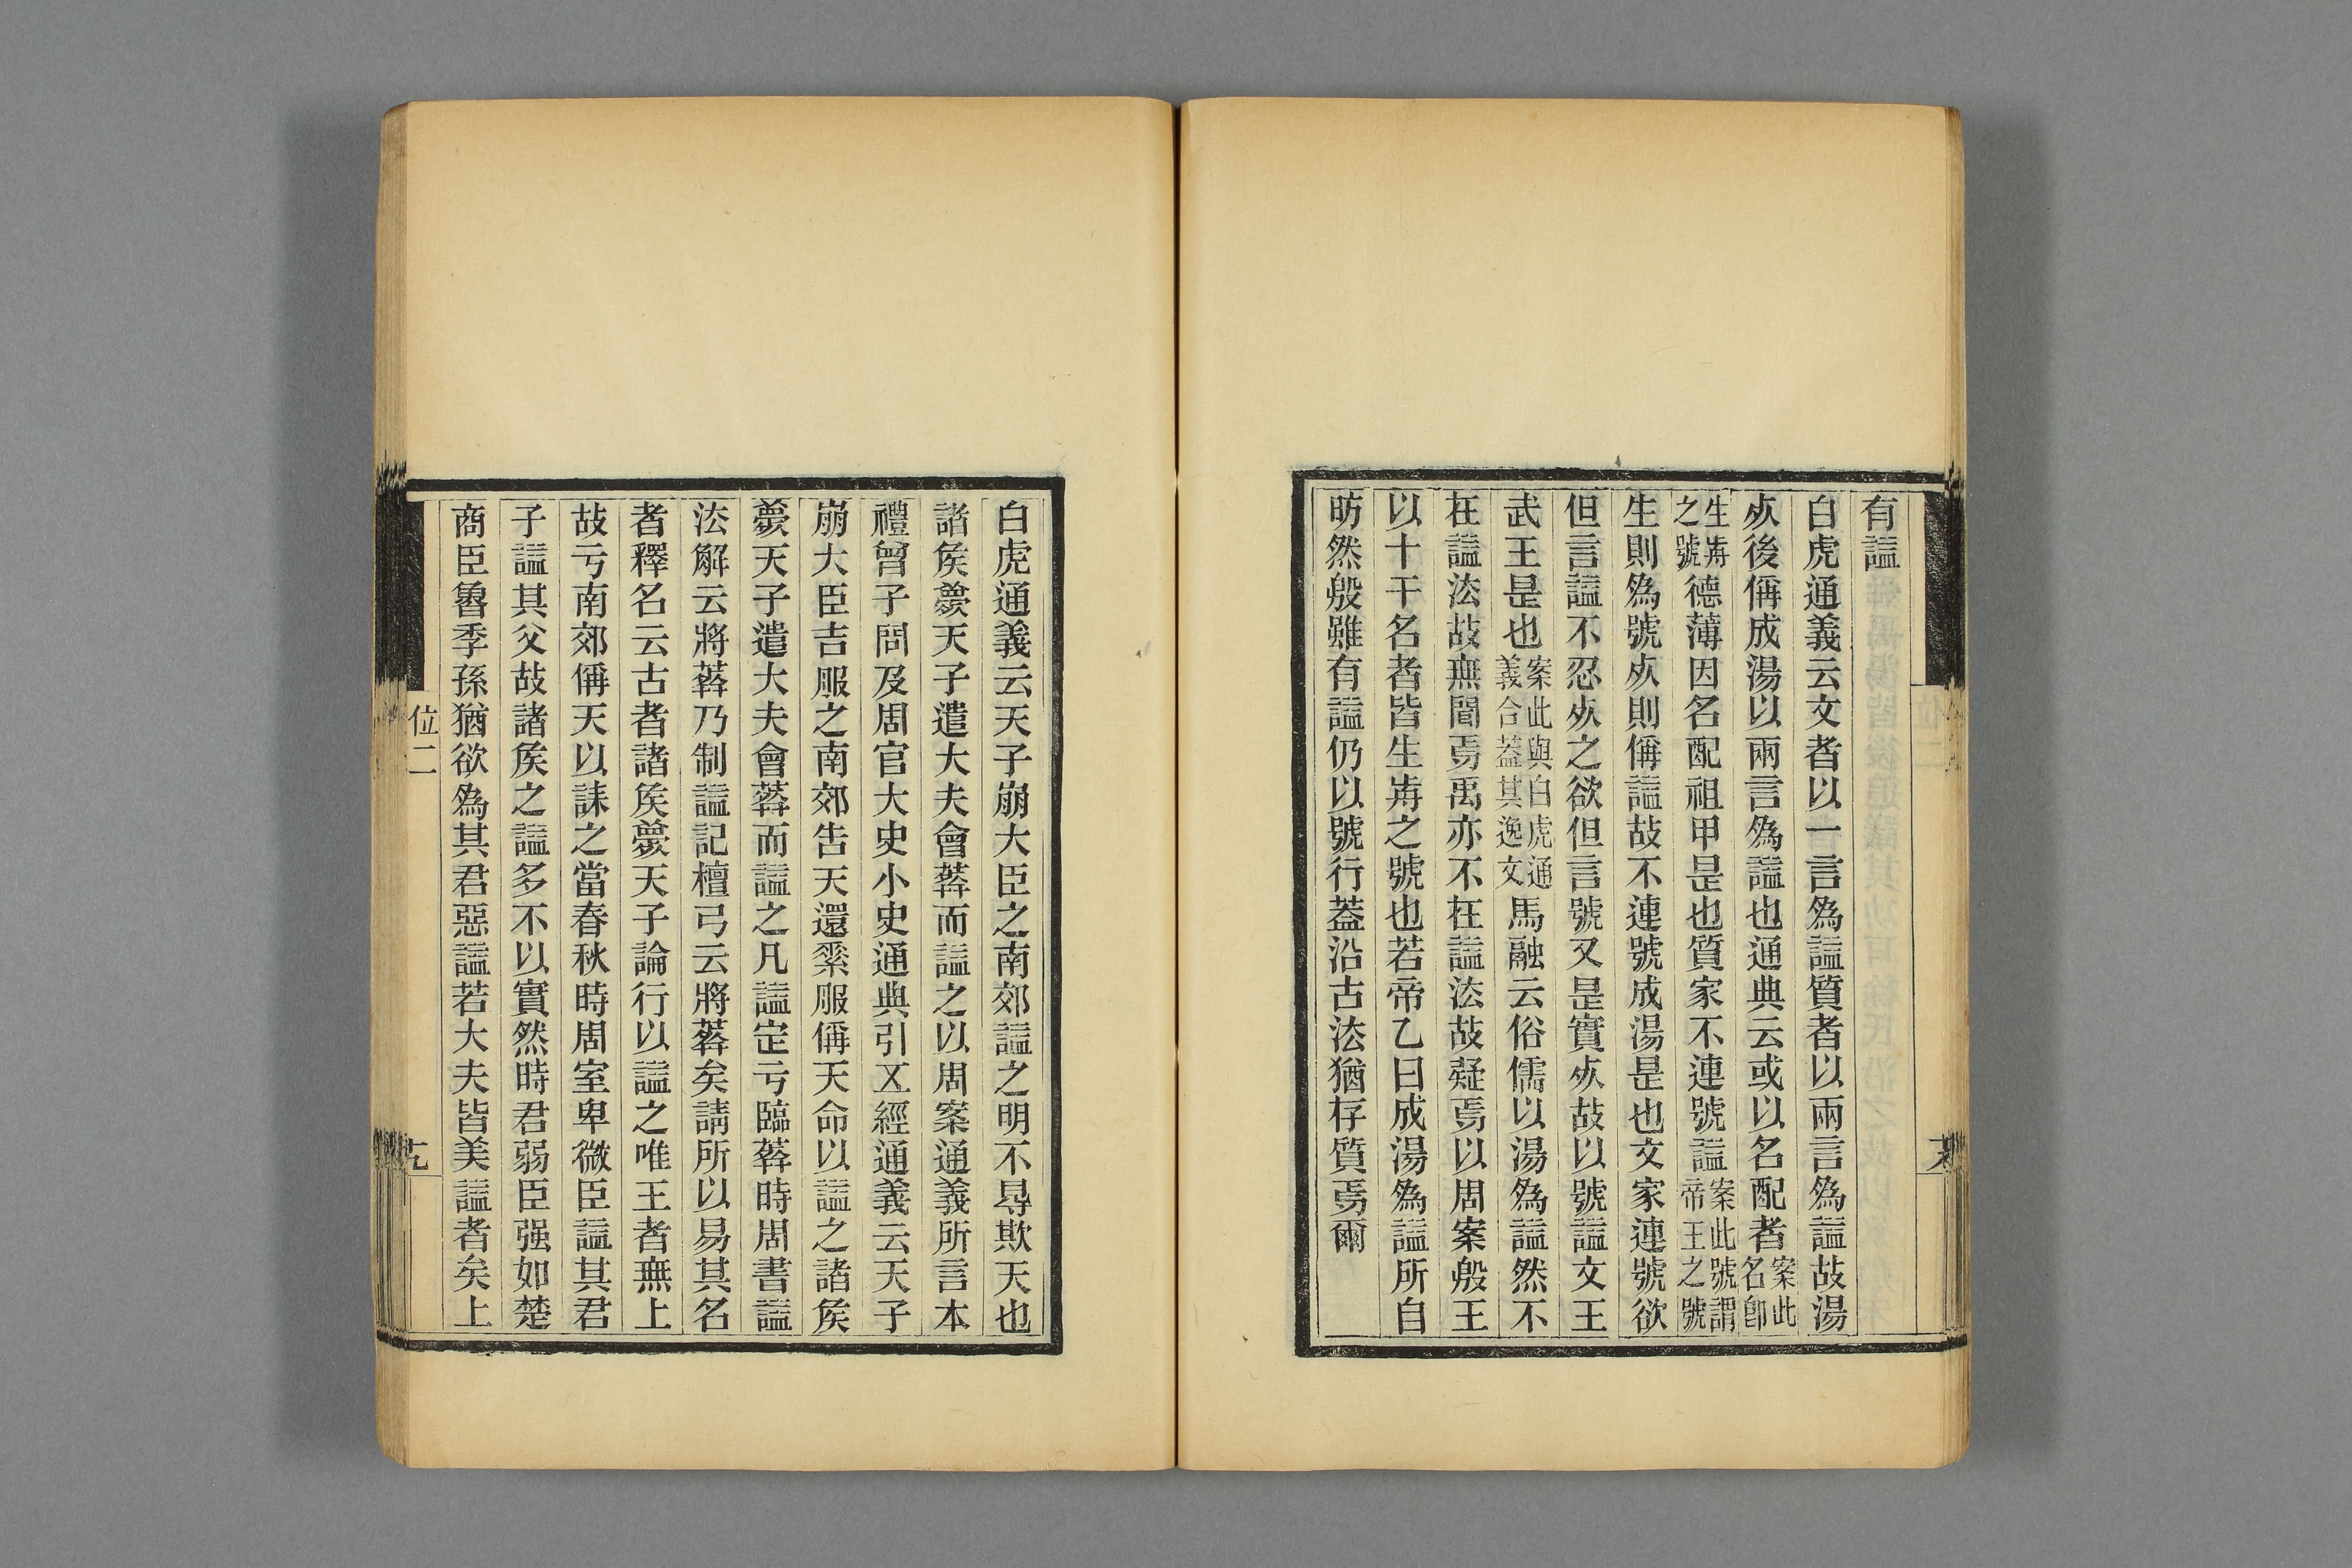 有諡
白虎通義云文者以一言爲諡質者以兩言爲諡故湯
𣦸後偁成湯以兩言爲諡也通典云或以名配者案此名卽
生歬之號德薄因名配祖甲是也質家不連號諡案此號謂帝王之號
生則爲號𣦸則偁諡故不連號成湯是也文家連號欲
但言諡不忍𣦸之欲但言號又是實𣦸故以號諡文王
武王是也案此與白虎通義合葢其逸文馬融云俗儒以湯爲諡然不
在諡法故無聞焉禹亦不在諡法故疑焉以周案殷王
以十干名者皆生歬之號也若帝乙曰成湯爲諡所自
昉然殷雖有諡仍以號行葢沿古法猶存質焉爾
位二
白虎通義云天子崩大臣之南郊諡之明不㝵欺天也
諸矦薨天子遣大夫會葬而諡之以周案通義所言本
禮曾子問及周官大史小史通典引五經通義云天子
崩大臣吉服之南郊告天還素服偁天命以諡之諸矦
薨天子遣大夫會葬而諡之凡諡定亏臨葬時周書諡
法解云將葬乃制諡記檀弓云將葬矣請所以易其名
者釋名云古者諸矦薨天子論行以諡之唯王者無上
故亏南郊偁天以誄之當春秋時周室卑微臣諡其君
子諡其父故諸矦之諡多不以實然時君弱臣强如楚
商臣魯季孫猶欲爲其君惡諡若大夫皆美諡者矣上